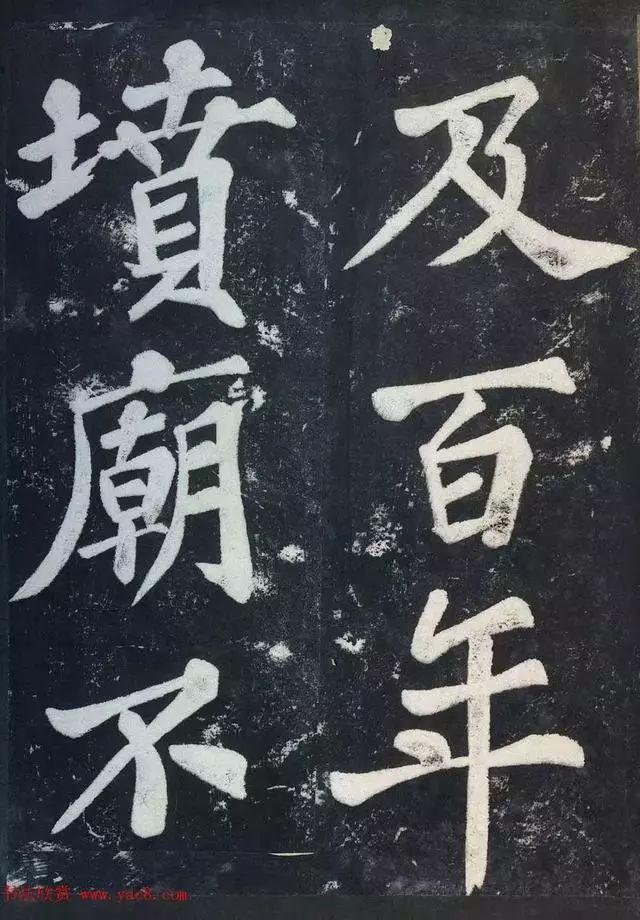 及百年
墳廟不
书法欣赏 www.yac8.com